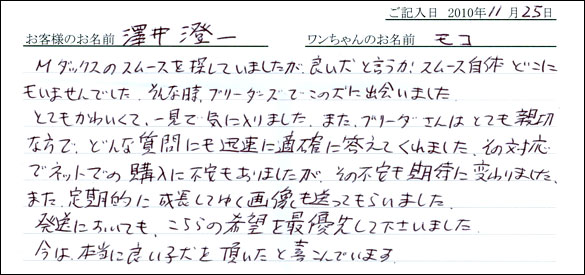 ご記入日 2010年11月25日
お客様のお名前 澤井 澄一 ワンちゃんのお名前 モコ
Mダックスのスムースを探していましたが、良い犬と言うか、スムース自体どこに
もいませんでした。そんな時、ブリーダーズでこの犬に出会いました。
とてもかわいくて、一見で気に入りました。また、ブリーダーさんはとても親切
な方で、どんな質問にも迅速に適確に答えてくれました。その対応
でネットでの購入に不安もありましたが、その不安も期待に変わりました。
また、定期的に成長してゆく画像も送ってもらいました。
発送においても、こちらの希望を最優先して下さいました。
今は、本当に良い子犬を頂いたと喜こんでいまる。